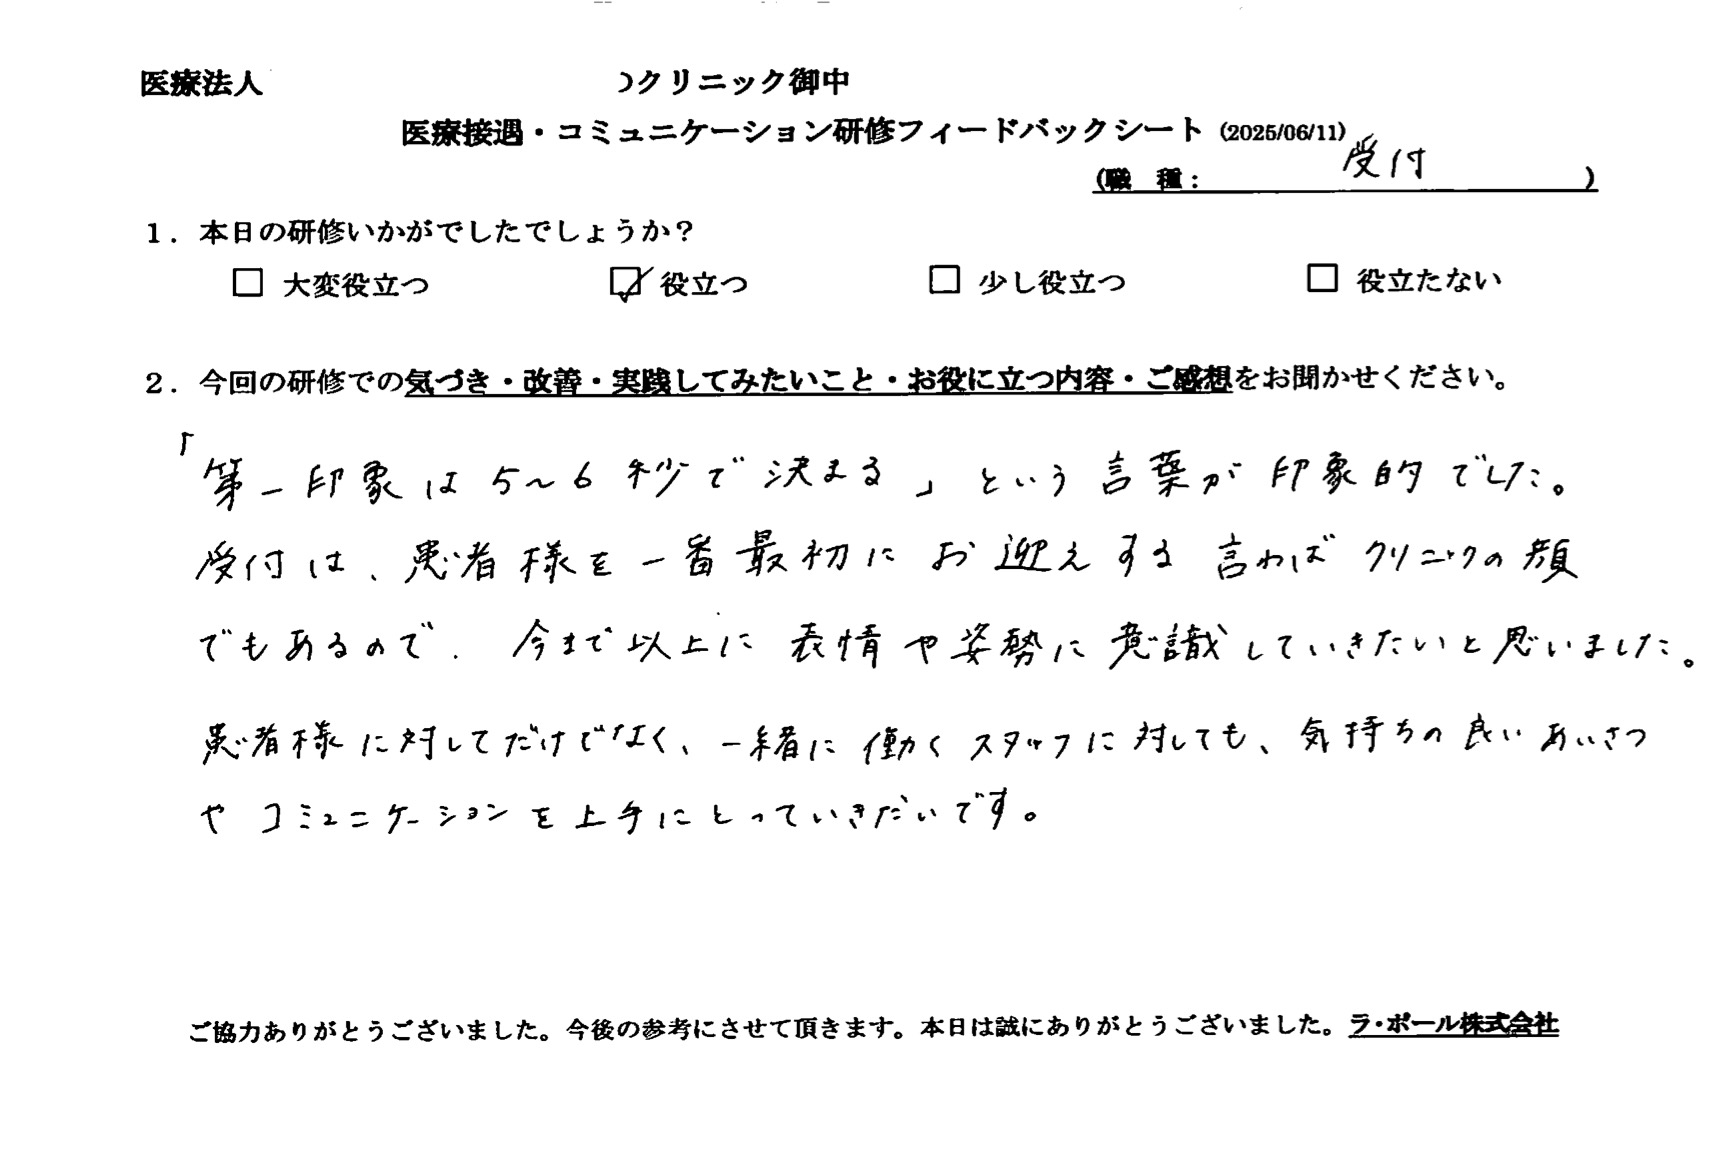 医療法人　　　　　　　　　　　クリニック御中
医療接遇・コミュニケーション研修フィードバックシート（2025/06/11）
（職　種：　受付　）
１．本日の研修いかがでしたでしょうか？
□ 大変役立つ　☑ 役立つ　□ 少し役立つ　□ 役立たない
２．今回の研修での気づき・改善・実践してみたいこと・お役に立つ内容・ご感想をお聞かせください。
「第一印象は5～6秒で決まる」という言葉が印象的でした。
受付は、患者様を一番最初にお迎えする言わばクリニックの顔
でもあるので、今まで以上に表情や姿勢に意識していきたいと思いました。
患者様に対してだけでなく、一緒に働くスタッフに対しても、気持ちの良いあいさつ
やコミュニケーションを上手にとっていきたいです。
ご協力ありがとうございました。今後の参考にさせて頂きます。本日は誠にありがとうございました。ラ・ポール株式会社